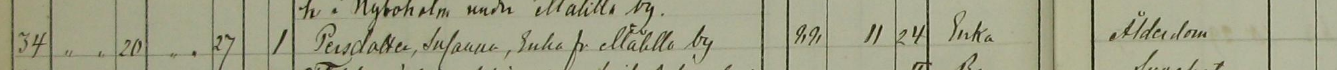 h i Nyboholm under Målilla by.
34 " " 20 " " 27 1 Persdatter, Susanna, Enka fr Målilla by 82 11 24 Enka Ålderdom